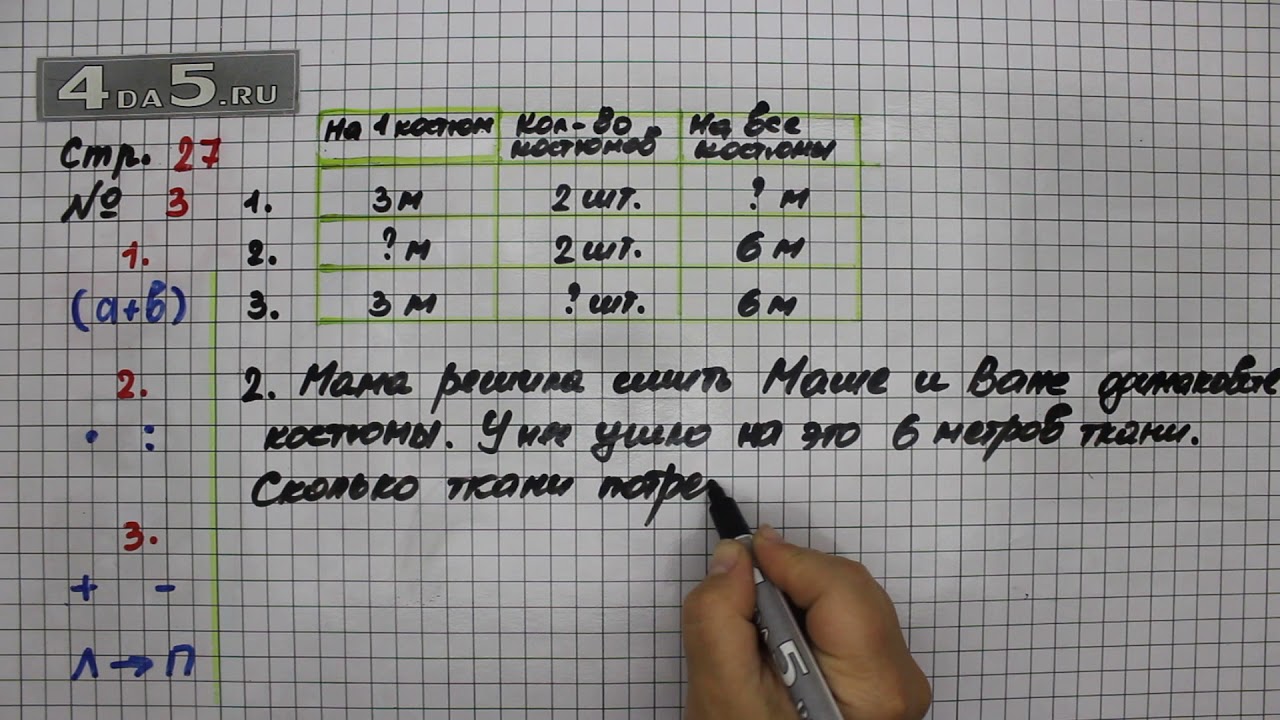 4DA5.RU
Стр. 27
№ 3
1.
(а+в)
2.
· :
3.
+ -
Л → П
на 1 костюм Кол-во костюмов На все костюмы
1. 3 м 2 шт. ? м
2. ? м 2 шт. 6 м
3. 3 м ? шт. 6 м
2. Мама решила сшить Маше и Ване одинаковые
костюмы. У нее ушло на это 6 метров ткани.
Сколько ткани потре